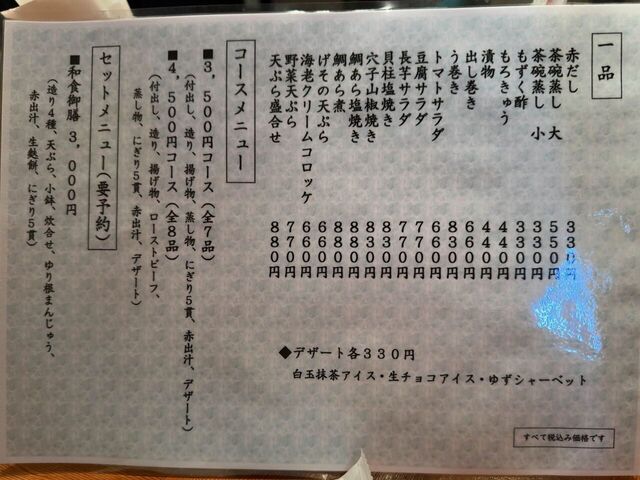 一品
赤だし 330円
茶碗蒸し 大 550円
茶碗蒸し 小 330円
もずく酢 330円
もろきゅう 440円
漬物 440円
出し巻き 660円
う巻き 830円
トマトサラダ 660円
豆腐サラダ 770円
長芋サラダ 770円
貝柱塩焼き 880円
穴子山椒焼き 830円
鯛あら塩焼き 880円
鯛あら煮 880円
げその天ぷら 660円
海老クリームコロッケ 660円
野菜天ぷら 770円
天ぷら盛合せ 880円
◆デザート各330円
白玉抹茶アイス・生チョコアイス・ゆずシャーベット
すべて税込み価格です
コースメニュー
■3,500円コース(全7品)
(付出し、造り、揚げ物、蒸し物、にぎり5貫、赤出汁、デザート)
■4,500円コース(全8品)
(付出し、造り、揚げ物、ローストビーフ、
蒸し物、にぎり5貫、赤出汁、デザート)
セットメニュー(要予約)
■和食御膳 3,000円
(造り4種、天ぷら、小鉢、炊合せ、ゆり根まんじゅう、
赤出汁、生麩餅、にぎり5貫)